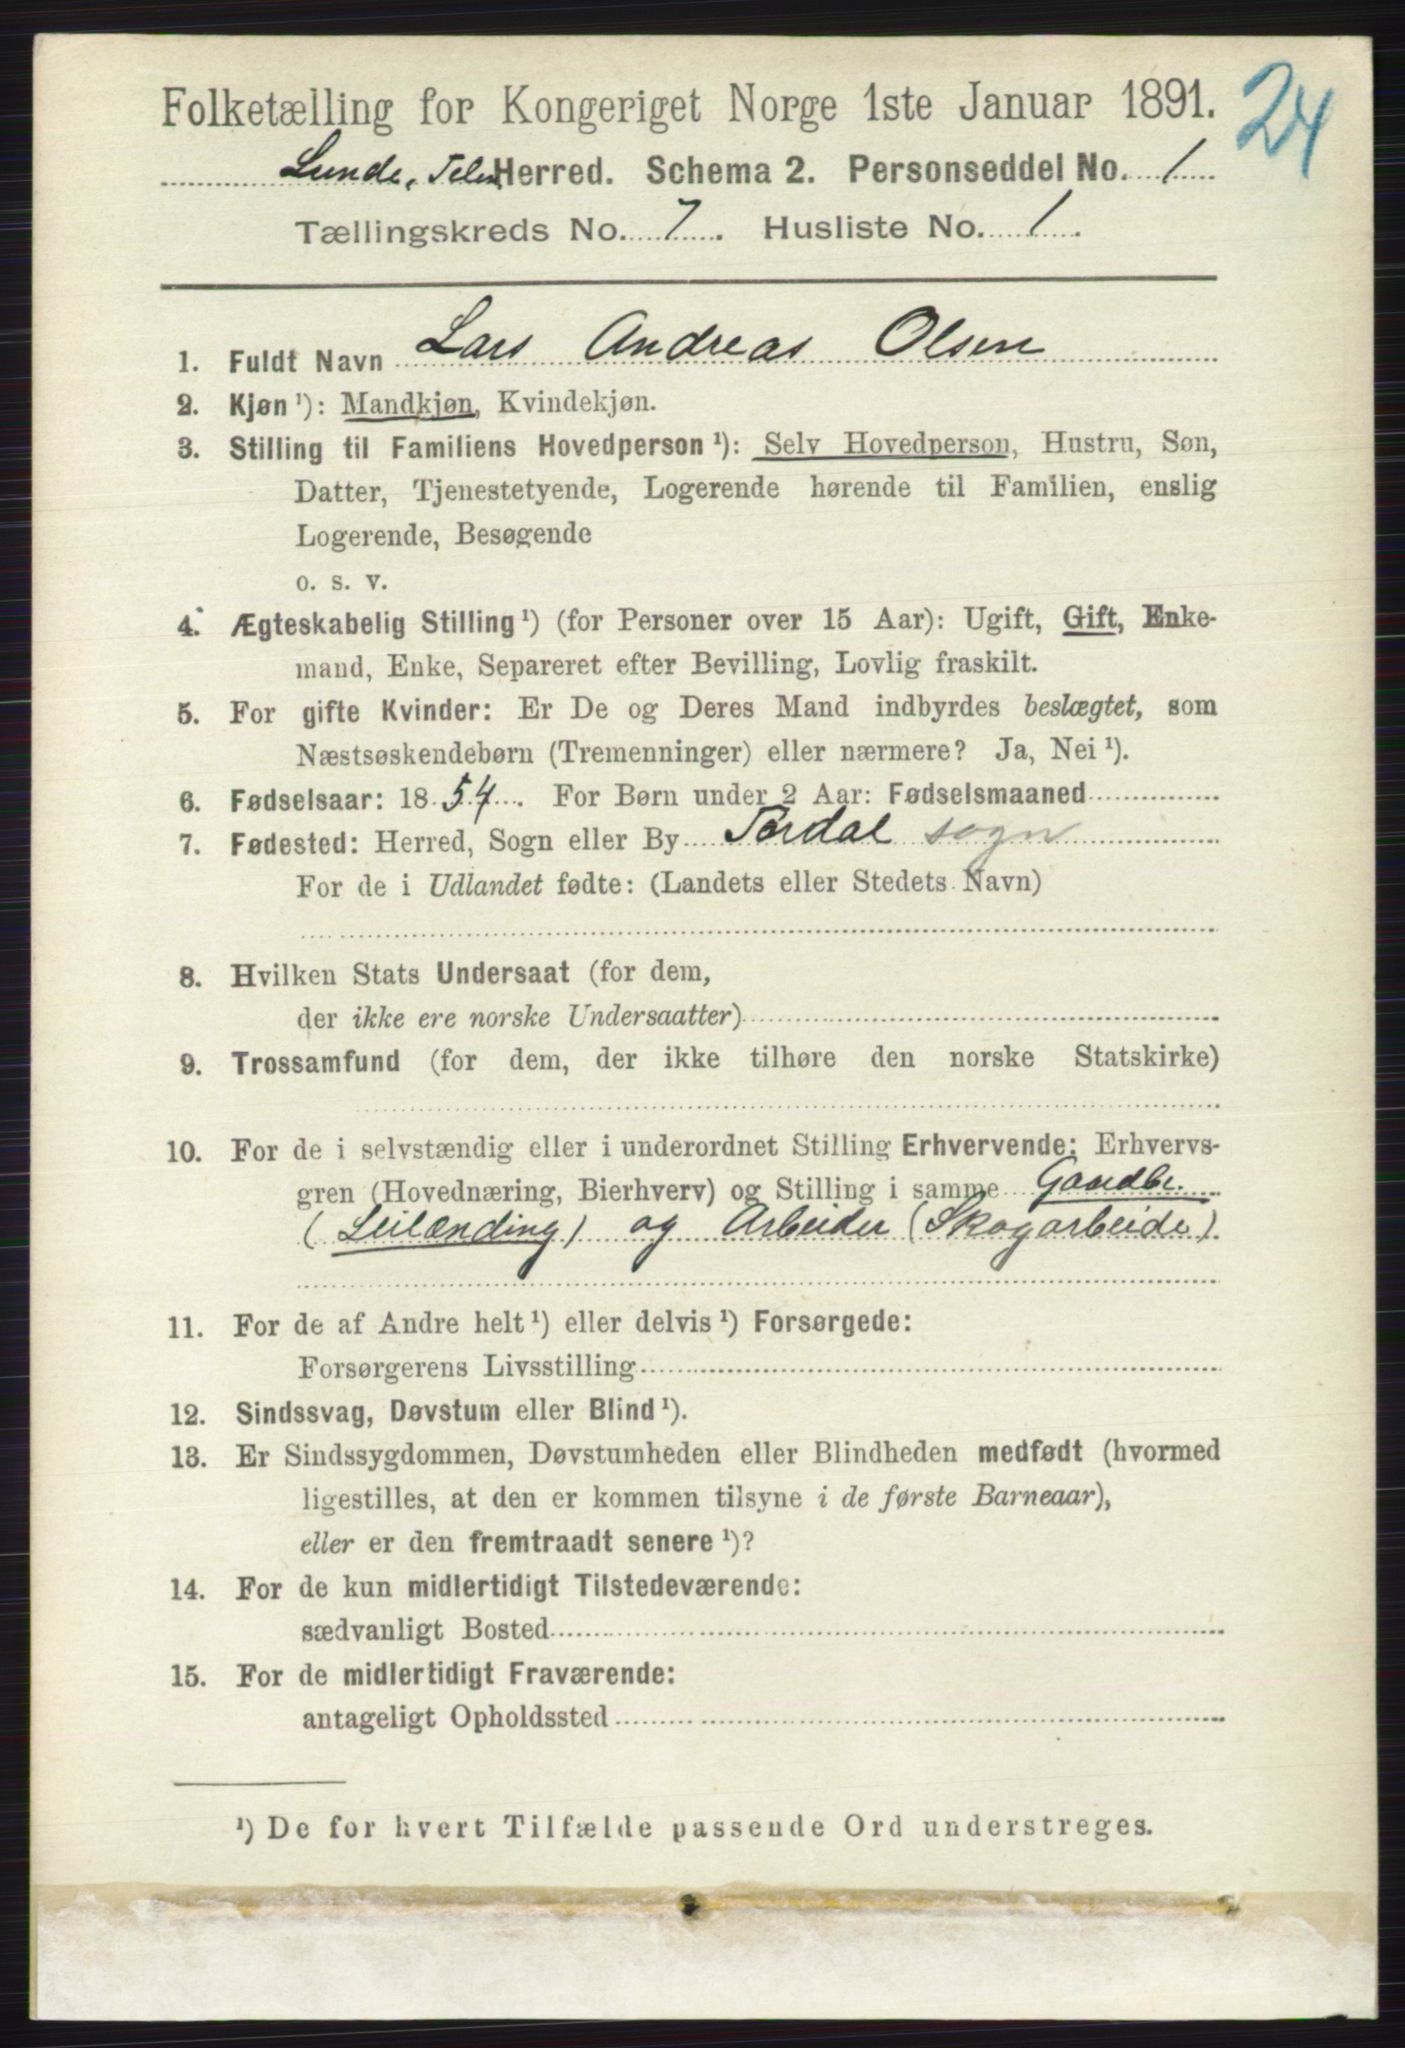 Folketælling for Kongeriget Norge 1ste Januar 1891. 24
Lunde, Telem. Herred. Schema 2. Personseddel No. 1
Tællingskreds No. 7. Husliste No. 1.
1. Fuldt Navn Lars Andreas Olsen
2. Kjøn ¹): Mandkjøn, Kvindekjøn.
3. Stilling til Familiens Hovedperson ¹): Selv Hovedperson, Hustru, Søn,
Datter, Tjenestetyende, Logerende hørende til Familien, enslig
Logerende, Besøgende
o. s. v.
4. Ægteskabelig Stilling ¹) (for Personer over 15 Aar): Ugift, Gift, Enke-
mand, Enke, Separeret efter Bevilling, Lovlig fraskilt.
5. For gifte Kvinder: Er De og Deres Mand indbyrdes beslægtet, som
Næstsøskendebørn (Tremenninger) eller nærmere? Ja, Nei ¹).
6. Fødselsaar: 1854. For Børn under 2 Aar: Fødselsmaaned
7. Fødested: Herred, Sogn eller By Tørdal sogn
For de i Udlandet fødte: (Landets eller Stedets Navn)
8. Hvilken Stats Undersaat (for dem,
der ikke ere norske Undersaatter)
9. Trossamfund (for dem, der ikke tilhøre den norske Statskirke)
10. For de i selvstændig eller i underordnet Stilling Erhvervende: Erhvervs-
gren (Hovednæring, Bierhverv) og Stilling i samme Gaardbr.
(Leilænding) og Arbeider (Skogarbeide).
11. For de af Andre helt ¹) eller delvis ¹) Forsørgede:
Forsørgerens Livsstilling
12. Sindssvag, Døvstum eller Blind ¹).
13. Er Sindssygdommen, Døvstumheden eller Blindheden medfødt (hvormed
ligestilles, at den er kommen tilsyne i de første Barneaar),
eller er den fremtraadt senere ¹)?
14. For de kun midlertidigt Tilstedeværende:
sædvanligt Bosted
15. For de midlertidigt Fraværende:
antageligt Opholdssted
¹) De for hvert Tilfælde passende Ord understreges.